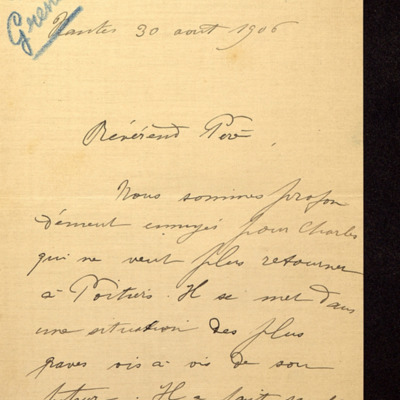 Gren
Nantes 30 aout 1906
Révérend Père,
Nous sommes profon
dément ennuyés pour Charles
qui ne veut plus retourner
à Poitiers. Il se met dans
une situation des plus
graves vis à vis de son
Il a fait